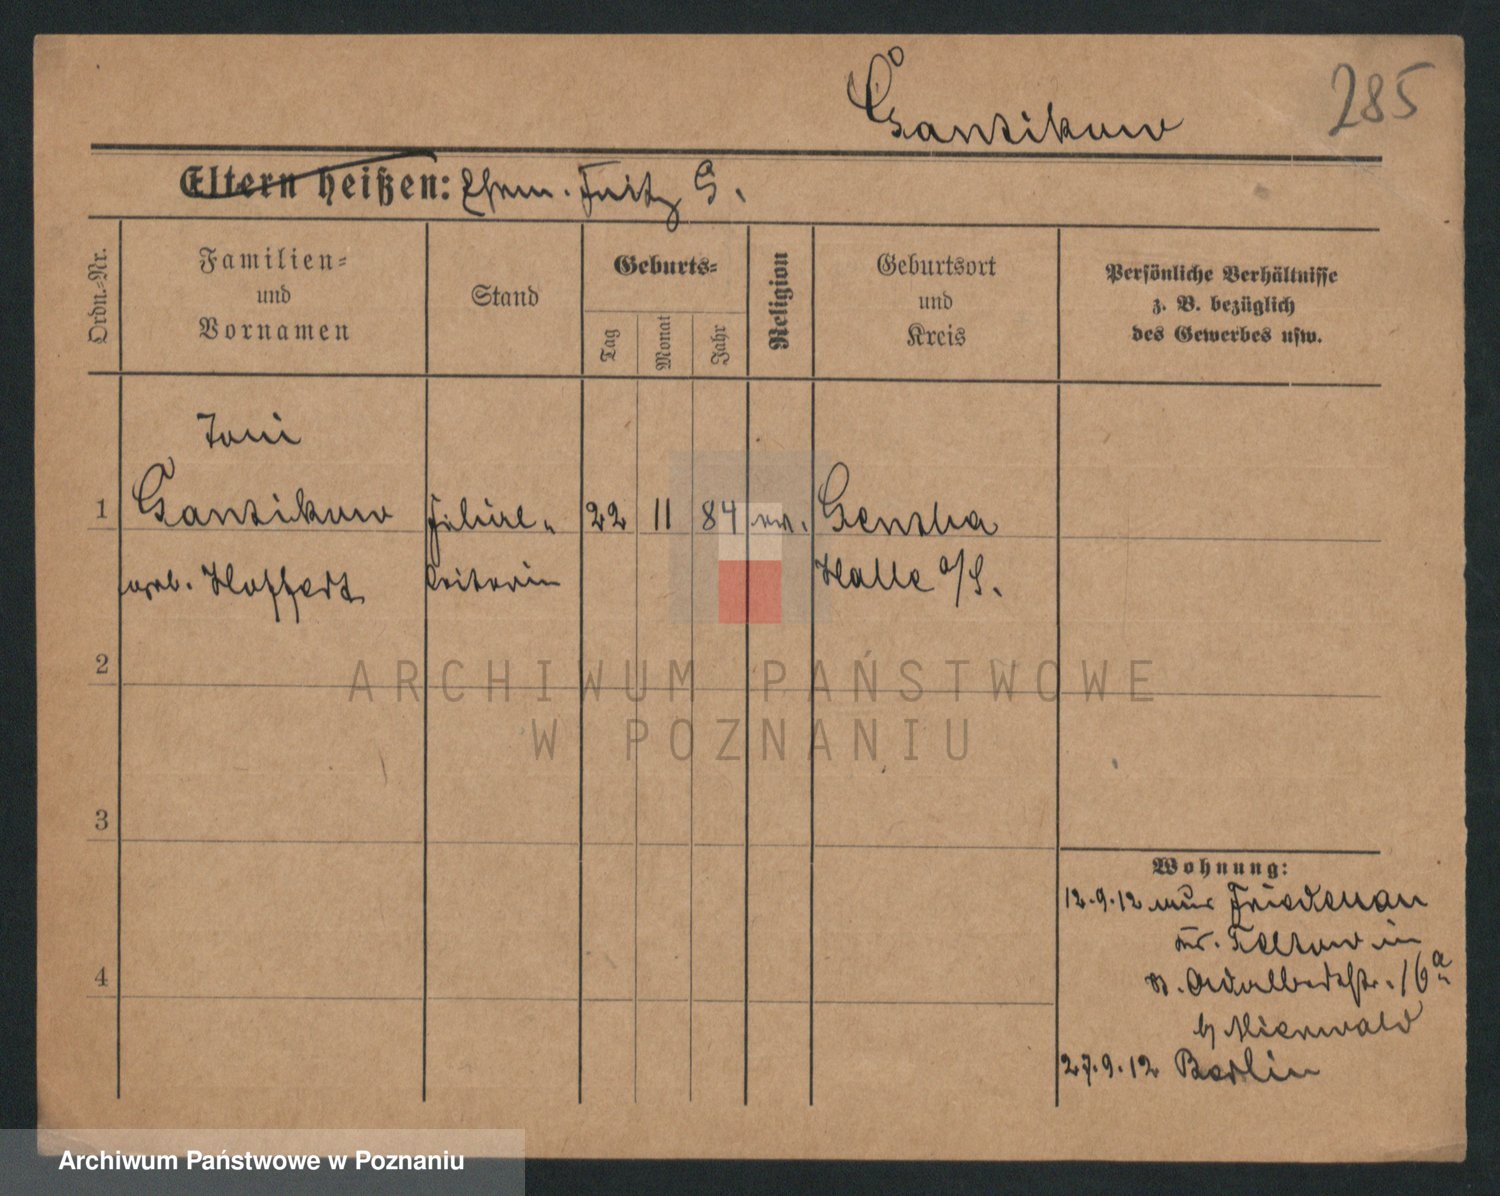 285
Gantzikow
Eltern heißen: Ehem. Fritz G.
Ordn.-Nr.
Familien-
und
Vornamen
Stand
Geburts-
Tag
Monat
Jahr
Religion
Geburtsort
und
Kreis
Persönliche Verhältnisse
z. B. bezüglich
des Gewerbes usw.
Toni
1 Gantzikow Filial- 22 11 84 ev.
geb. Hoffert leiterin Halle a/S.
2
3
4
Wohnung:
12.9.12 aus Friedenau
Kr. Teltow in
St. Adalbertstr. 16a
b/ Nierwald
27.9.12 Berlin
ARCHIWUM PAŃSTWOWE
W POZNANIU
Archiwum Państwowe w Poznaniu